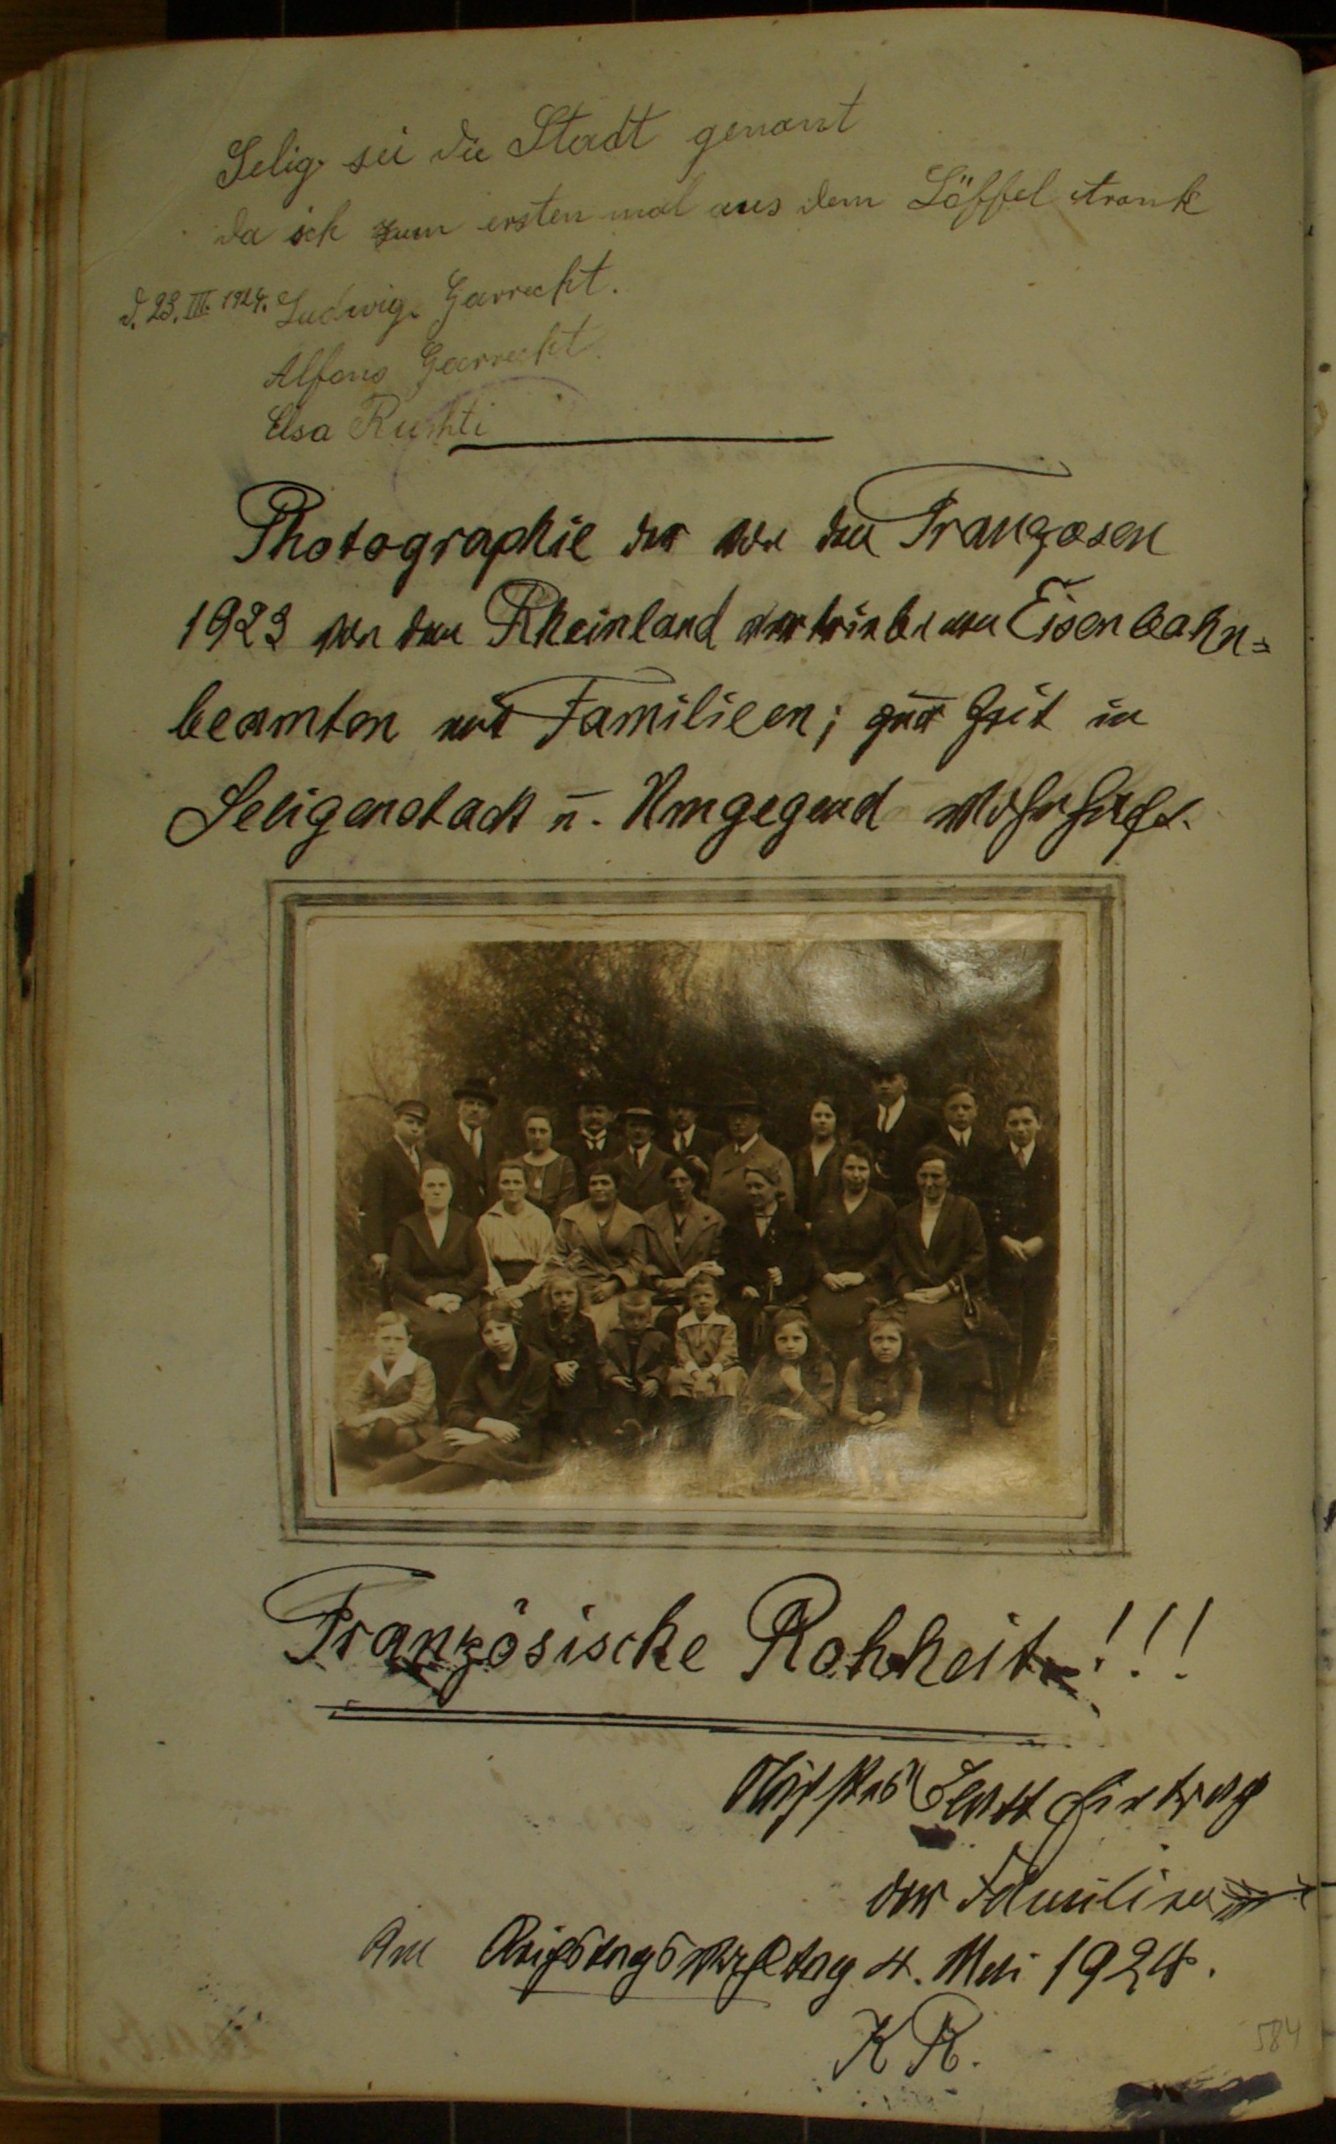 Selig sei die Stadt genant
da ich zum ersten mal aus dem Löffel trank
d. 23. III. 1924. Ludwig Garrecht.
Alfons Garrecht.
Elsa
Photographie der von den Franzosen
1923 von dem Rheinland vertriebenen Eisenbahn=
beamten mit Familieen; zur Zeit in
Seligenstadt u. Umgegend wohnhaft.
Französische Rohheit!!!
Nächstes Blatt Eintrag
der Familien
Am Reichstagswahltag 4. Mai 1924.
K R.
584